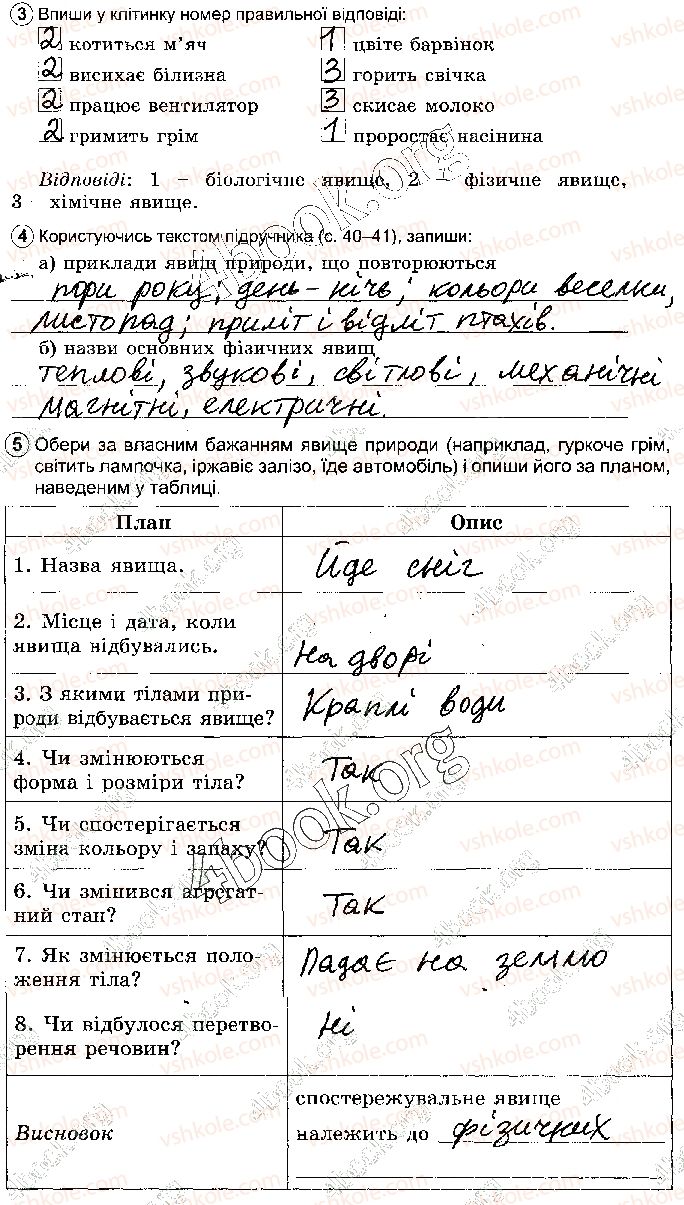 3 Впиши у клітинку номер правильної відповіді:
2 котиться м'яч 1 цвіте барвінок
2 висихає білизна 3 горить свічка
2 працює вентилятор 3 скисає молоко
2 гримить грім 1 проростає насінина
Відповіді: 1 – біологічне явище, 2 – фізичне явище,
3 хімічне явище.
4 Користуючись текстом підручника (с. 40–41), запиши:
а) приклади явищ природи, що повторюються
пори року, день-ніч; кольори веселки,
листопад; приліт і відліт птахів.
б) назви основних фізичних явищ
теплові, звукові, світлові, механічні
магнітні, електричні.
5 Обери за власним бажанням явище природи (наприклад, гуркоче грім,
світить лампочка, іржавіє залізо, їде автомобіль) і опиши його за планом,
наведеним у таблиці.
План Опис
1. Назва явища. Йде сніг
2. Місце і дата, коли
явища відбувались. На дворі
3. З якими тілами при-
роди відбувається явище? Краплі води
4. Чи змінюються
форма і розміри тіла? Так
5. Чи спостерігається
зміна кольору і запаху? Так
6. Чи змінився агрегат-
ний стан? Так
7. Як змінюється поло-
ження тіла? Падає на землю
8. Чи відбулося перетво-
рення речовин? Ні
Висновок
спостережувальне явище
належить до фізичних
4book.org
vshkole.com